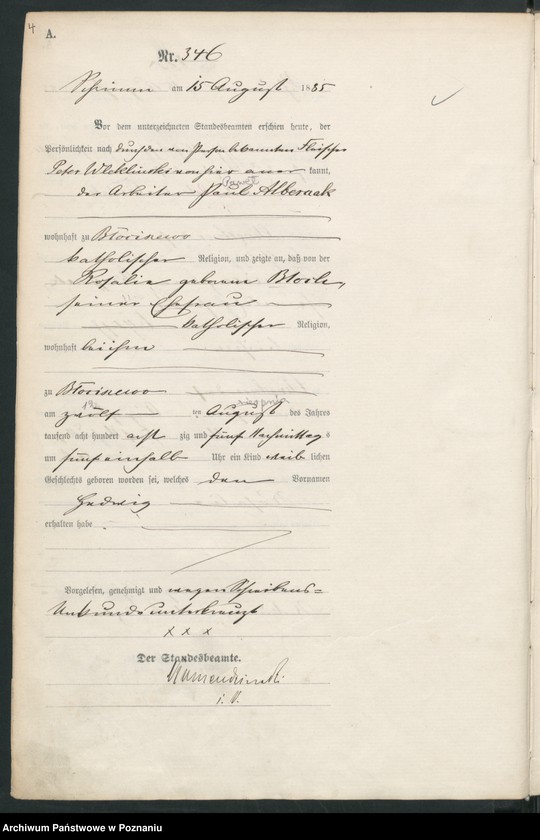 4
A.
Nr. 346
Schrimm am 15 August 1885
Vor dem unterzeichneten Standesbeamten erschien heute, der
Persönlichkeit nach durch den von Person bekannten Fleischer
Peter von hier aner kannt,
Paweł
der Arbeiter Paul
wohnhaft zu
katholischer Religion, und zeigte an, daß von der
Rosalie geborenen
seiner Ehefrau
katholischer Religion,
wohnhaft bei ihm
zu
12 sierpnia
am zwölf ten August des Jahres
tausend acht hundert acht zig und fünf Nachmittag s
um fünf einhalb Uhr ein Kind weib lichen
Geschlechts geboren worden sei, welches den Vornamen
Hedwig
erhalten habe.
Vorgelesen, genehmigt und wegen Schreibens-
Unkunde unterkreuzt
x x x
Der Standesbeamte.
i. V.
Archiwum Państwowe w Poznaniu